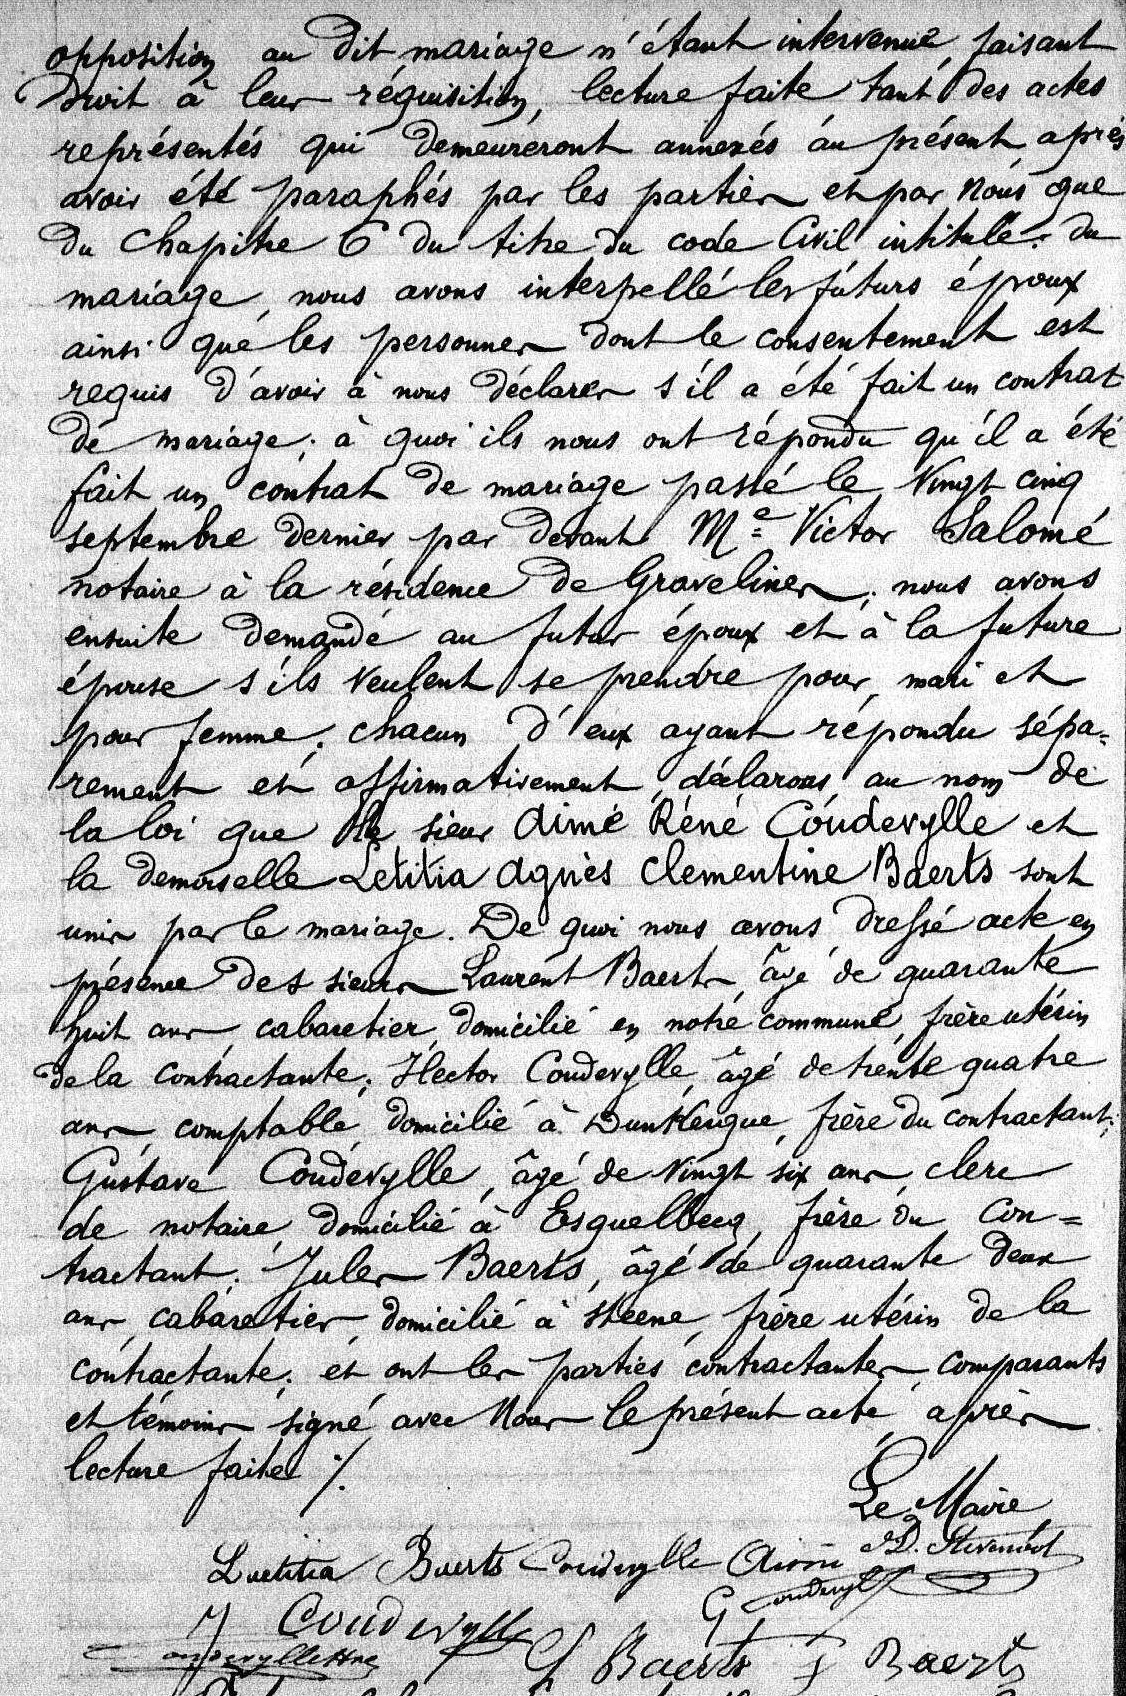 opposition au dit mariage n'étant intervenue, faisant
Droit à leur réquisition, lecture faite tant des actes
représentés qui demeureront annexés au présent après
avoir été paraphés par les parties et par Nous que
du Chapitre 6 du titre du code Civil intitulé: du
mariage, nous avons interpellé les futurs époux
ainsi que les personnes dont le consentement est
requis d'avoir à nous déclarer s'il a été fait un contrat
de mariage; à quoi ils nous ont répondu qu'il a été
fait un contrat de mariage passé le Vingt cinq
septembre dernier par devant Me Victor Salomé
notaire à la résidence de Gravelines; nous avons
ensuite demandé au futur époux et à la future
épouse s'ils veulent se prendre pour mari et
pour femme; chacun d'eux ayant répondu sépa=
rement et affirmativement, déclarons au nom de
la loi que le sieur Aimé Réné Coudevylle et
la demoiselle Letitia Agnès Clementine Baerts sont
unis par le mariage. De quoi nous avons dressé acte en
présence des sieurs Laurent Baerts, âgé de quarante
huit ans, cabaretier, domicilié en notre commune, frère utérin
de la contractante; Hector Coudevylle, âgé de trente quatre
ans, comptable, domicilié à Dunkerque, frère du contractant;
Gustave Coudevylle, âgé de Vingt six ans, clerc
de notaire, domicilié à Esquelbecq, frère du Con=
tractant; Jules Baerts, âgé de quarante deux
ans, cabaretier, domicilié à Steene, frère utérin de la
contractante; et ont les parties contractantes, comparants
et témoins signé avec Nous le présent acte, après
lecture faite ./.
Le Maire
Laetitia Baerts Coudevylle Aimé
G Coudevylle
Coudevylle
Baerts J Baerts